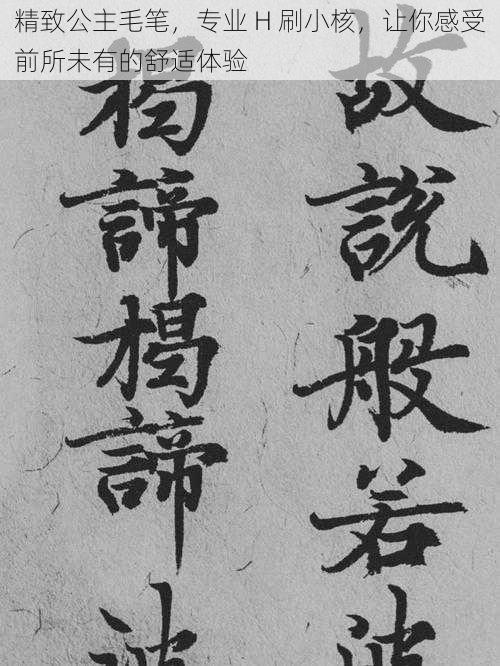 精致公主毛笔，专业 H 刷小核，让你感受
前所未有的舒适体验
故說般若波
揭諦揭諦波